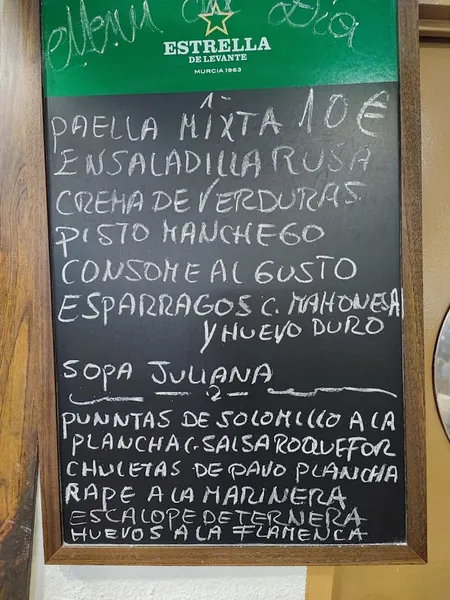 Menú del Día
ESTRELLA
DE LEVANTE
MURCIA 1963
1-
PAELLA MIXTA 10€
ENSALADILLA RUSA
CREMA DE VERDURAS
PISTO MANCHEGO
CONSOME AL GUSTO
ESPARRAGOS C. MAHONESA
Y HUEVO DURO
SOPA JULIANA
2
PUNNTAS DE SOLOMILLO A LA
PLANCHA C. SALSA ROQUEFOR
CHULETAS DE PAVO PLANCHA
RAPE A LA MARINERA
ESCALOPE DE TERNERA
HUEVOS A LA FLAMENCA